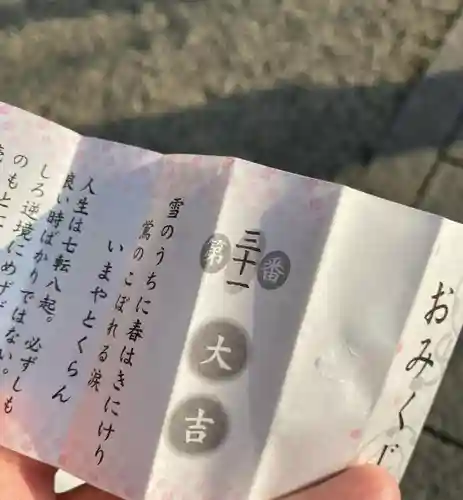 おみくじ
第三十一番
大吉
雪のうちに春はきにけり
鶯のこぼれる涙
いまやとくらん
人生は七転八起。
良い時ばかりではない。必ずしも
しろ逆境にめげず
のもとに